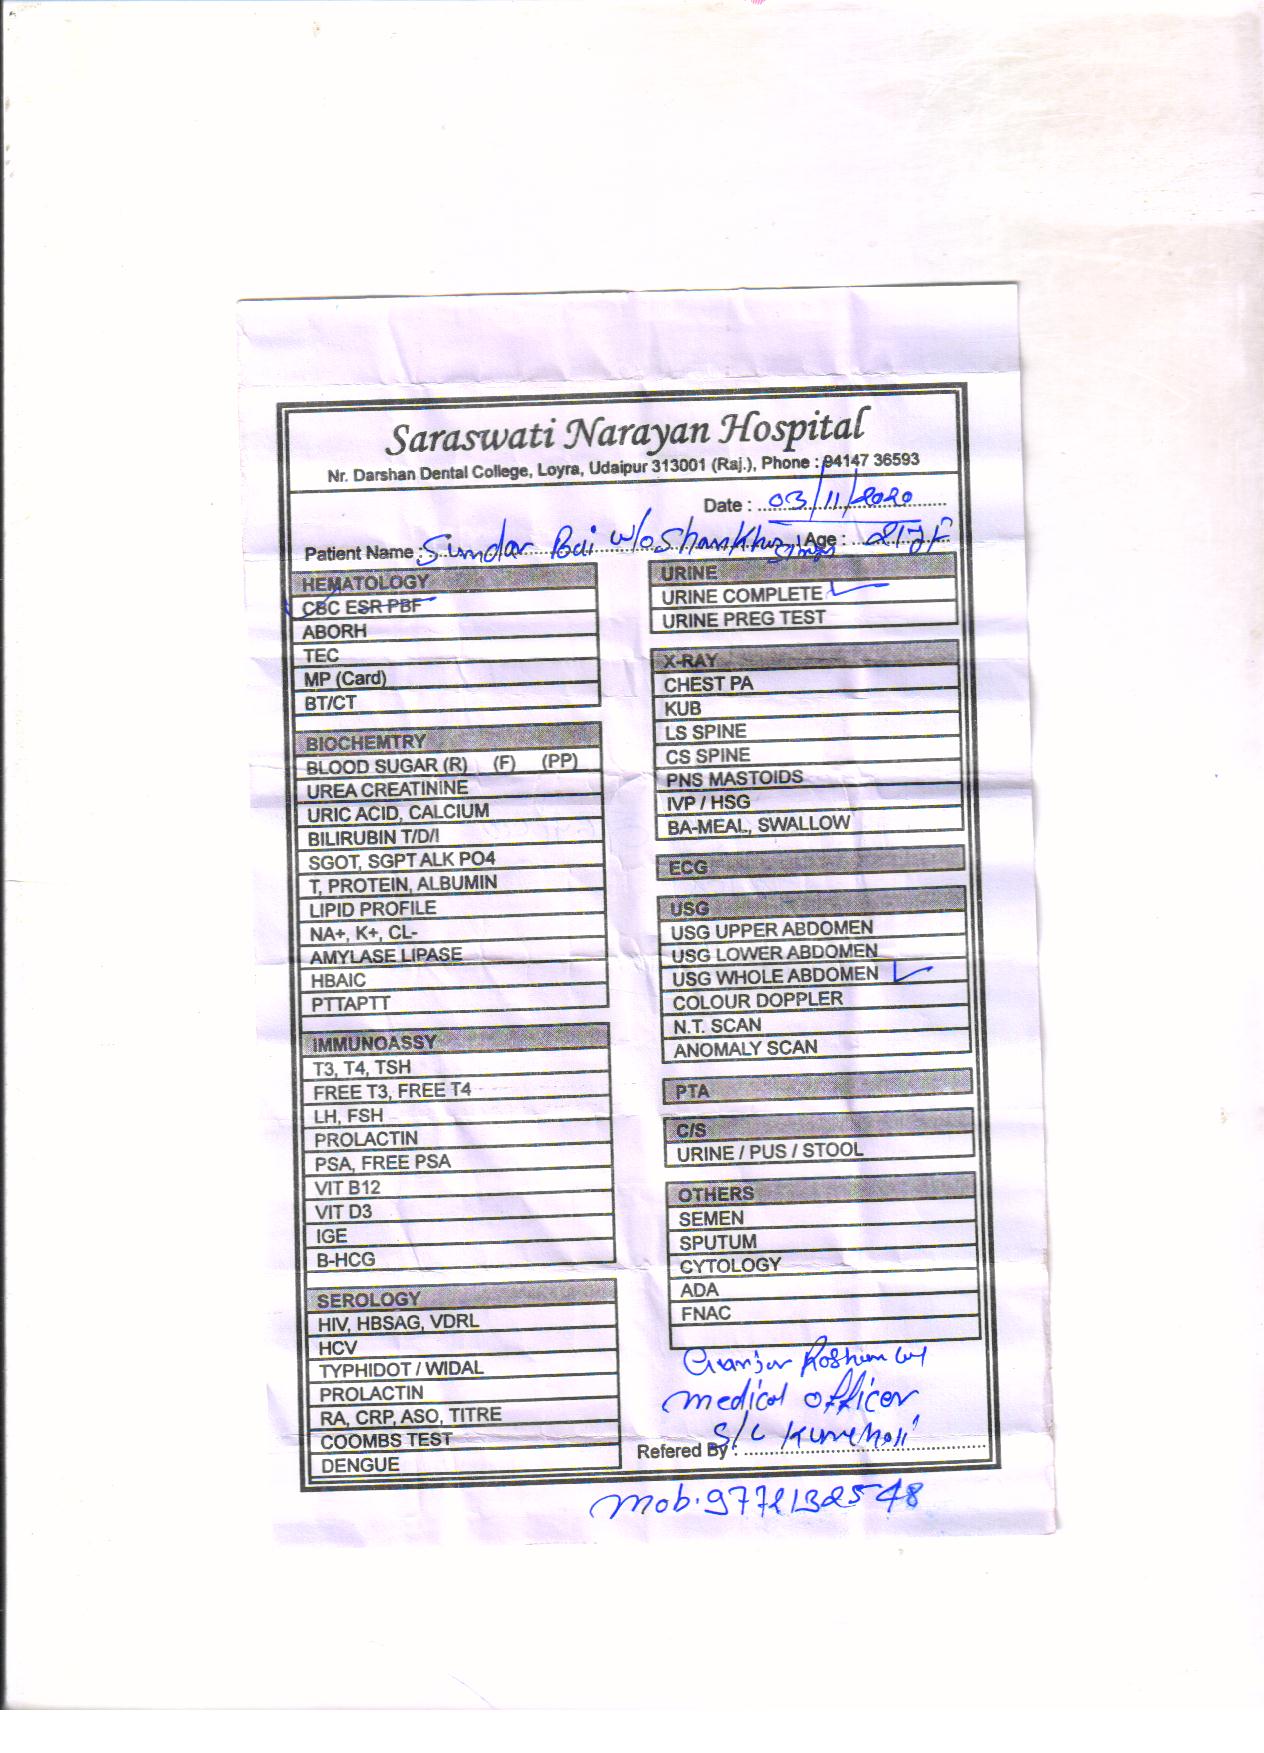 Saraswati Narayan Hospital
Nr. Darshan Dental College, Loyra, Udaipur 313001 (Raj.), Phone : 94147 36593
Date : 03/11/2020
Patient Name : Sundar Bai w/o Shankhr Singh Age : 21y F
HEMATOLOGY
CBC ESR PBF
ABORH
TEC
MP (Card)
BT/CT
BIOCHEMTRY
BLOOD SUGAR (R) (F) (PP)
UREA CREATININE
URIC ACID, CALCIUM
BILIRUBIN T/D/I
SGOT, SGPT ALK PO4
T, PROTEIN, ALBUMIN
LIPID PROFILE
NA+, K+, CL-
AMYLASE LIPASE
HBAIC
PTTAPTT
IMMUNOASSY
T3, T4, TSH
FREE T3, FREE T4
LH, FSH
PROLACTIN
PSA, FREE PSA
VIT B12
VIT D3
IGE
B-HCG
SEROLOGY
HIV, HBSAG, VDRL
HCV
TYPHIDOT / WIDAL
PROLACTIN
RA, CRP, ASO, TITRE
COOMBS TEST
DENGUE
URINE
URINE COMPLETE
URINE PREG TEST
X-RAY
CHEST PA
KUB
LS SPINE
CS SPINE
PNS MASTOIDS
IVP / HSG
BA-MEAL, SWALLOW
ECG
USG
USG UPPER ABDOMEN
USG LOWER ABDOMEN
USG WHOLE ABDOMEN
COLOUR DOPPLER
N.T. SCAN
ANOMALY SCAN
PTA
C/S
URINE / PUS / STOOL
OTHERS
SEMEN
SPUTUM
CYTOLOGY
ADA
FNAC
medical officer
S/C
Refered By :
Mob. 9772132548